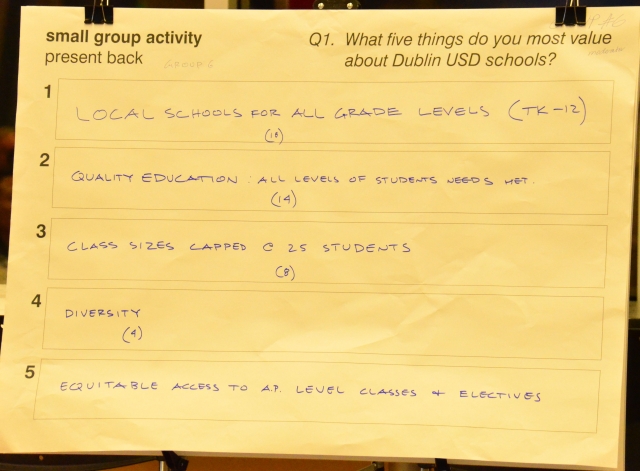 small group activity
present back
GROUP 6
Q1. What five things do you most value
about Dublin USD schools?
1
LOCAL SCHOOLS FOR ALL GRADE LEVELS (TK-12)
2
QUALITY EDUCATION : ALL LEVELS OF STUDENTS NEEDS MET.
(14)
3
CLASS SIZES CAPPED @ 25 STUDENTS
(8)
4
DIVERSITY
(4)
5
EQUITABLE ACCESS TO A.P. LEVEL CLASSES + ELECTIVES